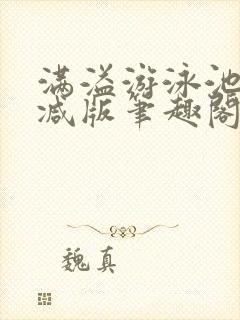 满溢游泳池
减版笔趣阁
魏真